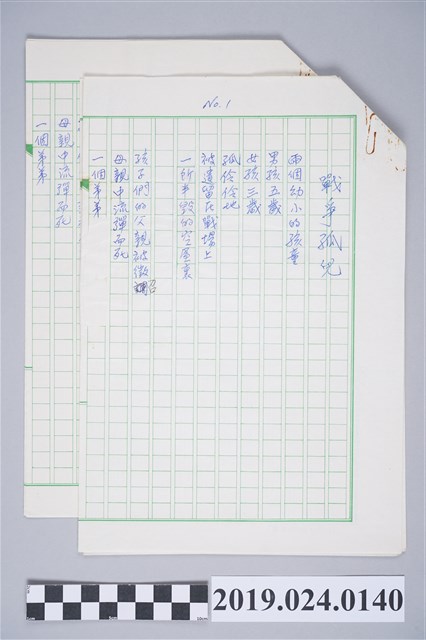 No. 1
戰爭孤兒
兩個幼小的孩童
男孩五歲
女孩三歲
孤伶伶地
被遺留在戰場上
一所半毀的空屋裏
孩子們的父親被徵召
母親中流彈而死
一個弟弟
母親中流彈而死
一個弟弟
2019.024.0140